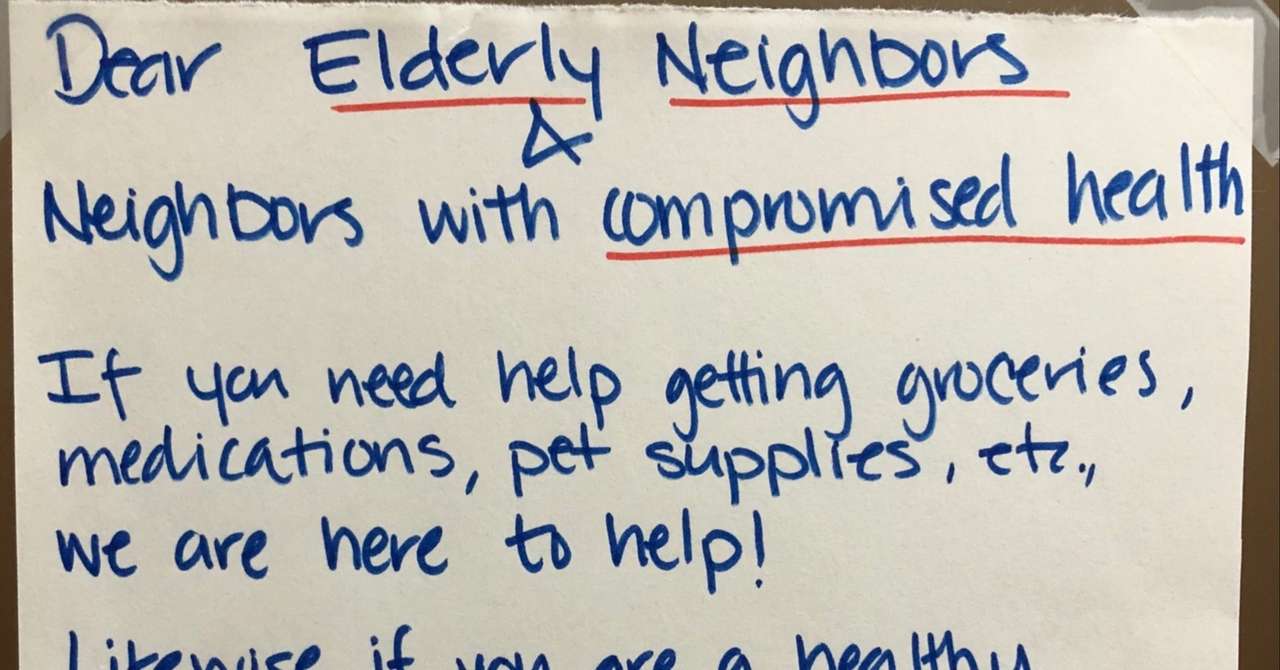 Dear Elderly Neighbors
&
Neighbors with compromised health
If you need help getting groceries,
medications, pet supplies, etc.,
we are here to help!
Likewise if you are a healthy